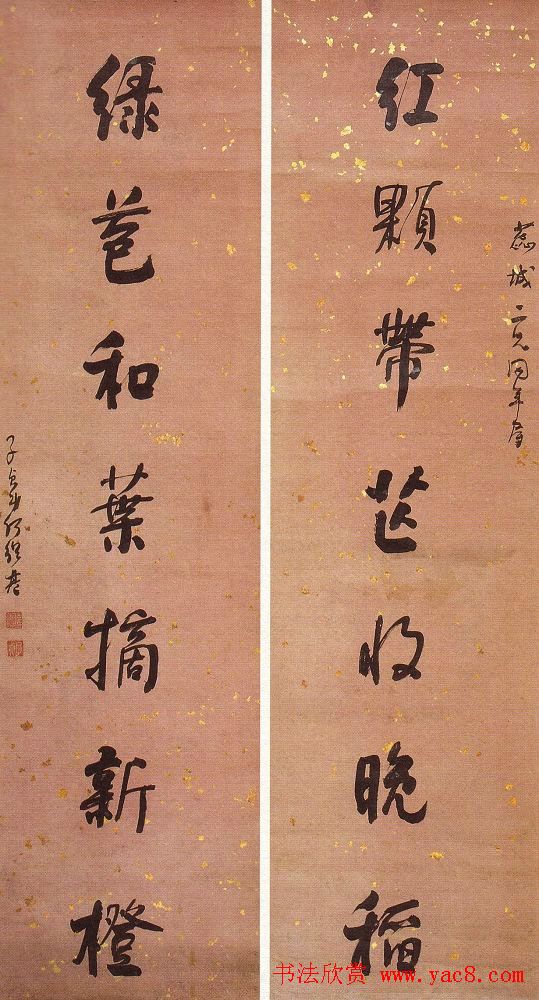 蕊城二兄同年属
紅顆帶芒收晚稻
綠苞和葉摘新橙
子貞弟何紹基
书法欣赏 www.yac8.com